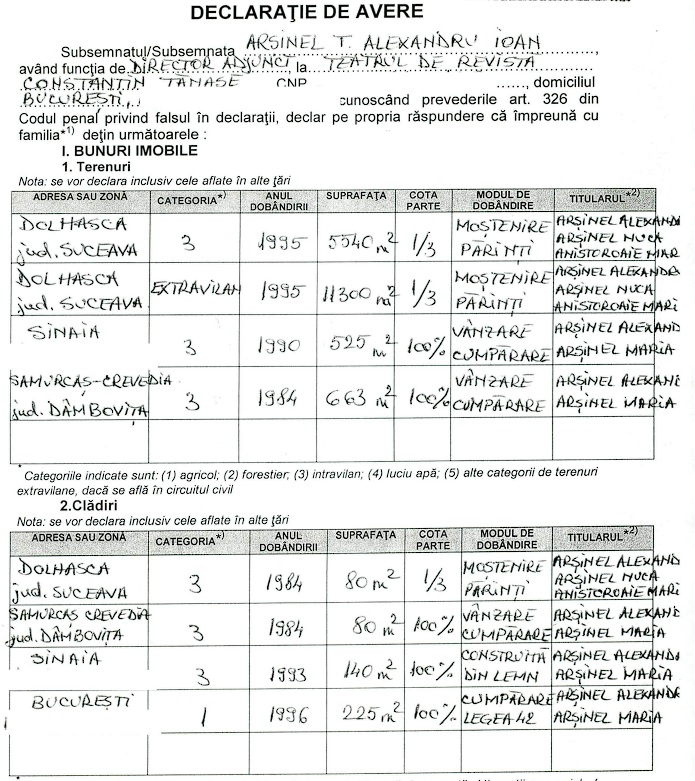 DECLARAŢIE DE AVERE
Subsemnatul/Subsemnata ARSINEL T. ALEXANDRU IOAN,
având funcţia de DIRECTOR ADJUNCT, la TEATRUL DE REVISTA
CONSTANTIN TĂNASE CNP ......, domiciliul
BUCUREŞTI, cunoscând prevederile art. 326 din
Codul penal privind falsul în declaraţii, declar pe propria răspundere că împreună cu
familia*1) deţin următoarele :
I. BUNURI IMOBILE
1. Terenuri
Nota: se vor declara inclusiv cele aflate în alte ţări
ADRESA SAU ZONĂ CATEGORIA*) ANUL DOBÂNDIRII SUPRAFAŢA COTA PARTE MODUL DE DOBÂNDIRE TITULARUL*2)
DOLHASCA jud. SUCEAVA 3 1995 5540 m2 1/3 MOŞTENIRE PĂRINŢI ARŞINEL ALEXAND ARŞINEL NUCA ANISTOROAIE MAR
DOLHASCA jud. SUCEAVA EXTRAVILAN 1995 11300 m2 1/3 MOŞTENIRE PĂRINŢI ARŞINEL ALEXANDR ARŞINEL NUCA ANISTOROAIE MARI
SINAIA 3 1990 525 m2 100% VÂNZARE CUMPĂRARE ARŞINEL ALEXAND ARŞINEL MARIA
SAMURCAŞ-CREVEDIA jud. DÂMBOVIŢA 3 1984 663 m2 100% VÂNZARE CUMPĂRARE ARŞINEL ALEXAND ARŞINEL MARIA
* Categoriile indicate sunt: (1) agricol; (2) forestier; (3) intravilan; (4) luciu apă; (5) alte categorii de terenuri
extravilane, dacă se află în circuitul civil
2.Clădiri
Nota: se vor declara inclusiv cele aflate în alte ţări
ADRESA SAU ZONĂ CATEGORIA*) ANUL DOBÂNDIRII SUPRAFAŢA COTA PARTE MODUL DE DOBÂNDIRE TITULARUL*2)
DOLHASCA jud. SUCEAVA 3 1984 80 m2 1/3 MOŞTENIRE PĂRINŢI ARŞINEL ALEXAND ARŞINEL NUCA ANISTOROAIE MARI
SAMURCAŞ CREVEDIA jud. DÂMBOVIŢA 3 1984 80 m2 100% VÂNZARE CUMPĂRARE ARŞINEL ALEXAND ARŞINEL MARIA
SINAIA 3 1993 140 m2 100% CONSTRUITĂ DIN LEMN ARŞINEL ALEXAND ARŞINEL MARIA
BUCUREŞTI 1 1996 225 m2 100% CUMPĂRARE LEGEA 42 ARŞINEL ALEXAND ARŞINEL MARIA